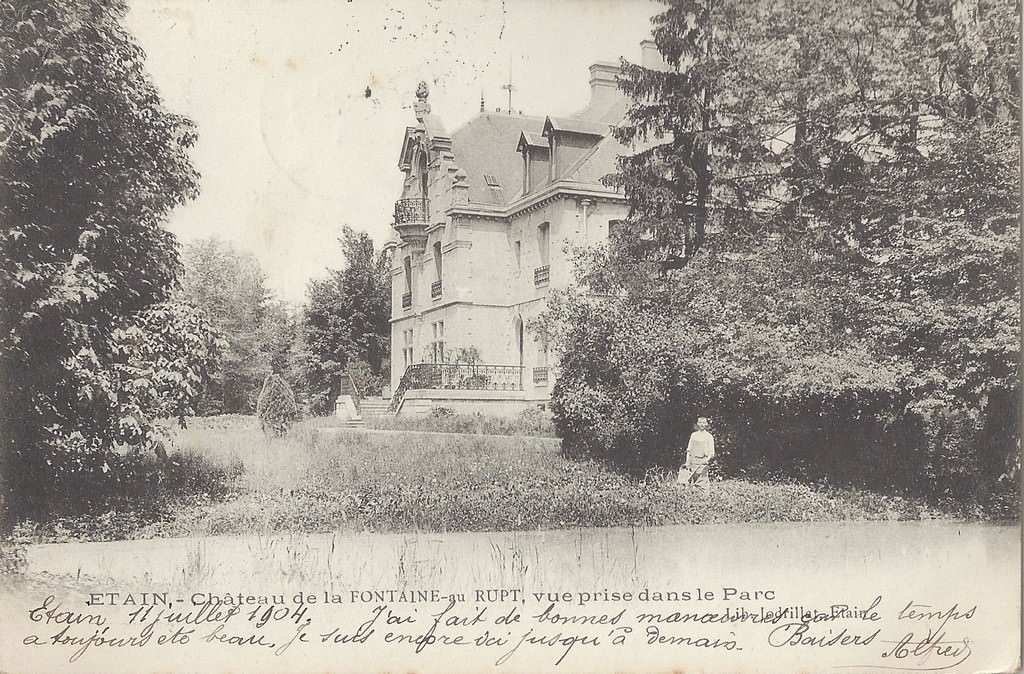 ETAIN. - Château de la FONTAINE-au RUPT, vue prise dans le Parc
Lib-Jedrillet-Etain
Etain, 11 juillet 1904. J'ai fait de bonnes manœuvres car le temps
a toujours été beau. Je suis encore ici jusqu'à demain. Baisers
Alfred